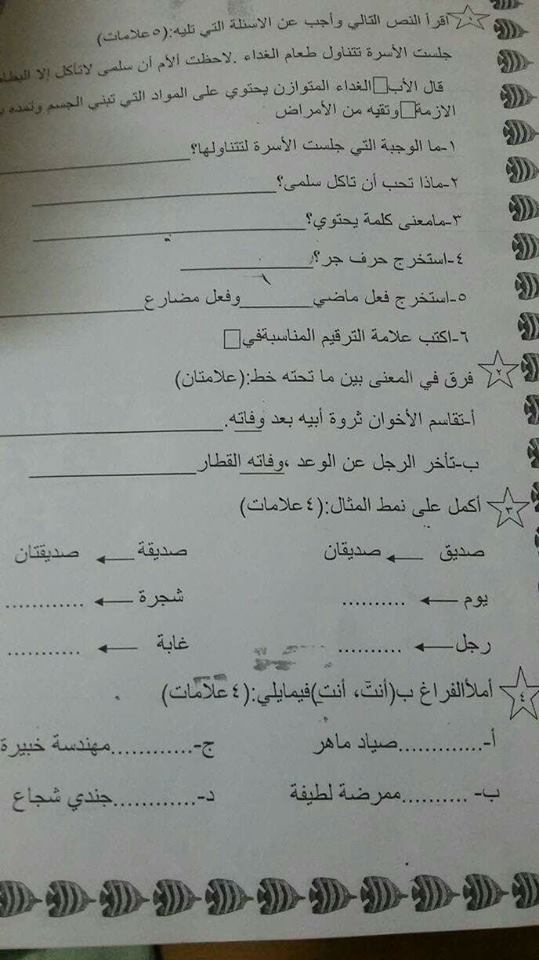 ١ اقرأ النص التالي وأجب عن الاسئلة التي تليه:(٥ علامات)
جلست الأسرة تتناول طعام الغداء .لاحظت ألأم أن سلمى لاتأكل إلا
قال الأب□الغداء المتوازن يحتوي على المواد التي تبني الجسم وتمده
الازمة□وتقيه من الأمراض
١-ما الوجبة التي جلست الأسرة لتتناولها؟
٢-ماذا تحب أن تاكل سلمى؟
٣-مامعنى كلمة يحتوي؟
٤-استخرج حرف جر؟
٥-استخرج فعل ماضي وفعل مضارع
٦-اكتب علامة الترقيم المناسبةفي□
٢ فرق في المعنى بين ما تحته خط:(علامتان)
أ-تقاسم الأخوان ثروة أبيه بعد وفاته.
ب-تأخر الرجل عن الوعد ،وفاته القطار
٣ أكمل على نمط المثال:(٤ علامات)
صديق ← صديقان صديقة ← صديقتان
يوم ← .......... شجرة ← ............
رجل ← .......... غابة ← ...........
٤ أملأالفراغ ب(أنتَ، أنتِ)فيمايلي:(٤ علامات)
أ-.............صياد ماهر ج-............مهندسة خبيرة
ب- ..........ممرضة لطيفة د-............جندي شجاع